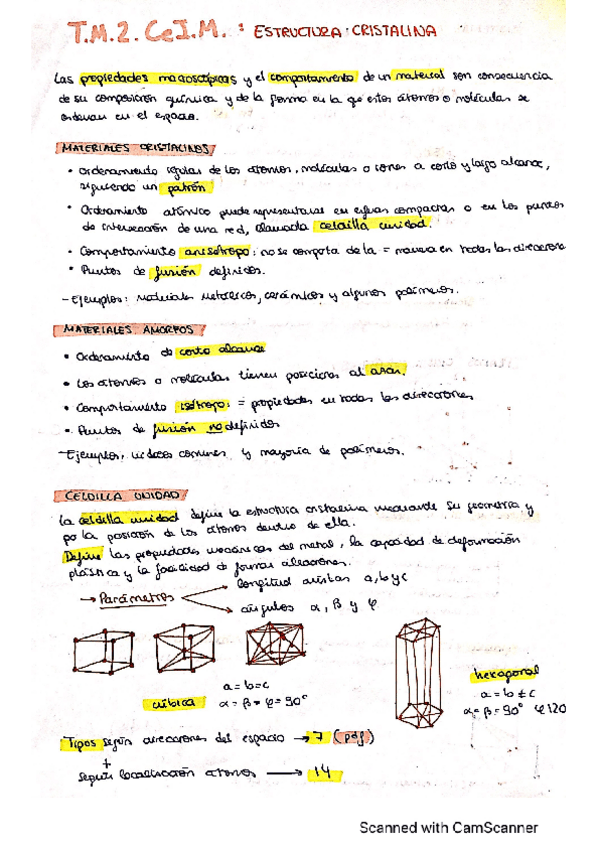 T.M.2. C e I.M. : ESTRUCTURA CRISTALINA
Las propiedades macroscópicas y el comportamiento de un material son consecuencia
de su composición química y de la forma en la que estos átomos o moléculas se
ordenan en el espacio.
MATERIALES CRISTALINOS
• Ordenamiento regular de los átomos, moléculas o iones a corto y largo alcance,
siguiendo un patrón
• Ordenamiento atómico puede representarse en esferas compactas o en los puntos
de intersección de una red, llamada celdilla unidad.
• Comportamiento anisótropo: no se comporta de la = manera en todas las direcciones
• Puntos de fusión definidos.
- Ejemplos: materiales metálicos, cerámicos y algunos polímeros.
MATERIALES AMORFOS
• Ordenamiento de corto alcance
• Los átomos o moléculas tienen posiciones al azar.
• Comportamiento isótropo: = propiedades en todas las direcciones
• Puntos de fusión no definidos
- Ejemplos, vidrios comunes y mayoría de polímeros.
CELDILLA UNIDAD
La celdilla unidad define la estructura cristalina mediante su geometría y
por la posición de los átomos dentro de ella.
Define las propiedades mecánicas del metal, la capacidad de deformación
plástica y la facilidad de formar aleaciones.
→ Parámetros
longitud aristas a, b y c
ángulos α, β y φ
cúbica
a = b = c
α = β = φ = 90°
hexagonal
a = b ≠ c
α = β = 90° φ 120
Tipos según direcciones del espacio → 7 (pdf)
+
según localización átomos → 14
Scanned with CamScanner